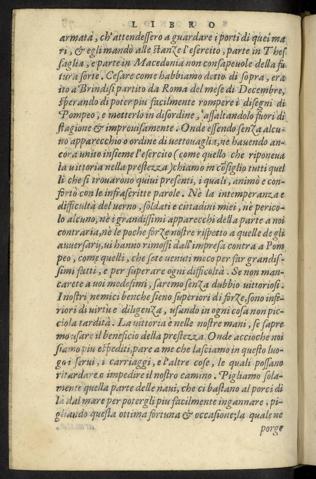 LIBRO
armata, ch'attendessero a guardare i porti di quei ma
ri, & egli mandò alle stanze l'esercito, parte in Thes
saglia, e parte in Macedonia non consapeuole della fu
tura sorte. Cesare come habbiamo detto di sopra, era
ito a Brindisi partito da Roma del mese di Decembre,
sperando di poter piu facilmente rompere i disegni di
Pompeo, e metterlo in disordine, assaltandolo fuori di
stagione & improuisamente. Onde essendo senza alcu-
no apparecchio o ordine di uettouaglia, ne hauendo an-
cora unito insieme l'esercito (come quello che riponeua
la uittoria nella prestezza) chiamò in cōsiglio tutti quel
li che si trouarono quiui presenti, i quali, animò e con-
fortò con le infrascritte parole. Nè la intemperanza e
difficultà del uerno, soldati e cittadini miei, nè perico-
lo alcuno, nè i grandissimi apparecchi della parte a noi
contraria, nè le poche forze nostre rispetto a quelle de gli
auuersarij, ui hanno rimossi dall'impresa contra a Pom
peo, come quelli, che sete uenuti meco per far grandis-
simi fatti, e per superare ogni difficultà. Se non man-
carete a uoi medesimi, saremo senza dubbio uittoriosi.
I nostri nemici benche sieno superiori di forze, sono infe-
riori di uirtù e diligenza, usando in ogni cosa non pic-
ciola tardità. La uittoria è nelle nostre mani, se sapre
mo usare il beneficio della prestezza. Onde accioche noi
siamo piu espediti, pare a me che lasciamo in questo luo-
go i serui, i carriaggi, e l'altre cose, le quali possano
ritardare e impedire il nostro camino. Pigliamo sola-
mente quella parte delle naui, che ci bastano al porci di
là dal mare per potergli piu facilmente ingannare, pi-
gliando questa ottima fortuna & occasione, la quale ne
porge